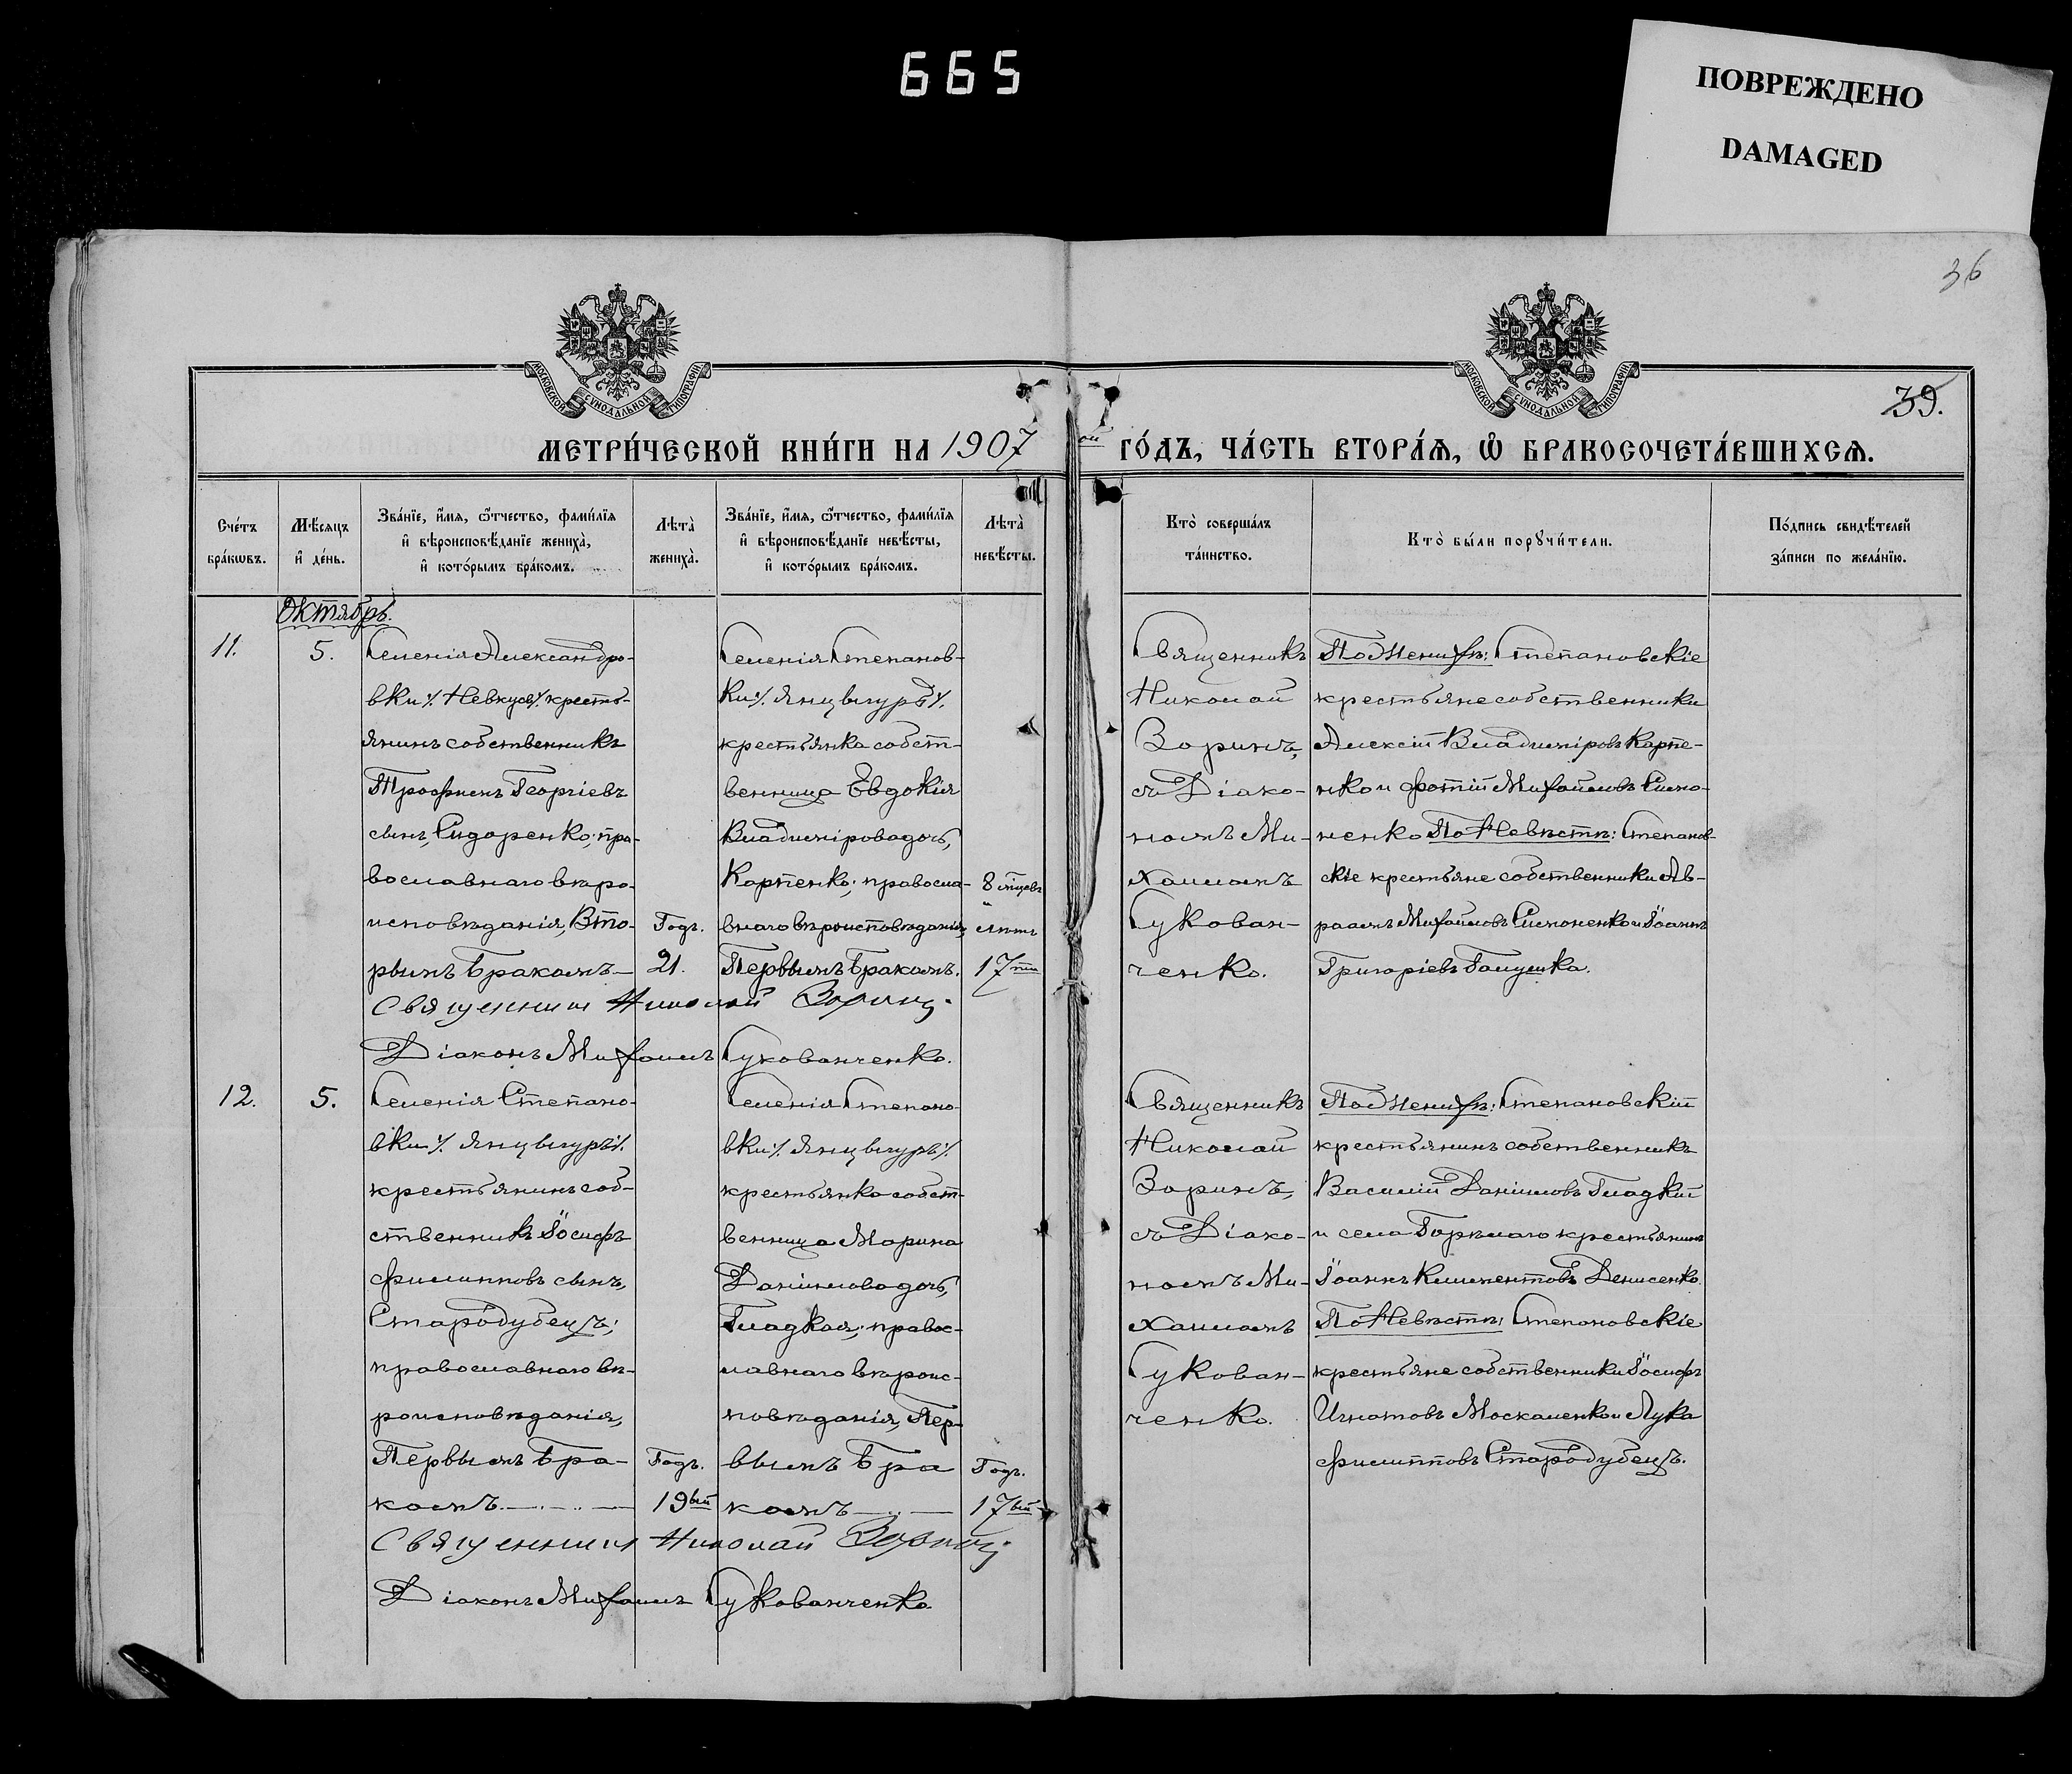 665
ПОВРЕЖДЕНО
DAMAGED
36
39.
МОСКОВСКОЙ СѴНОДАЛЬНОЙ ТИПОГРАФІИ
МОСКОВСКОЙ СѴНОДАЛЬНОЙ ТИПОГРАФІИ
МЕТРИ́ЧЕСКОЙ КНИ́ГИ НА 1907ой ГО́ДЪ, ЧА́СТЬ ВТОРА́Ѧ, Ѽ БРАКОСОЧЕТА́ВШИХСѦ.
Сче́тъ
бра́кѡвъ.
Мѣ́сяцъ
и҆ де́нь.
Зва́нїе, и҆́мя, ѻ҆́тчество, фами́лїя
и҆ вѣроисповѣ́данїе жениха̀,
и҆ кото́рымъ бра́комъ.
Лѣта̀
жениха̀.
Зва́нїе, и҆́мя, ѻ҆́тчество, фами́лїя
и҆ вѣроисповѣ́данїе невѣ́сты,
и҆ кото́рымъ бра́комъ.
Лѣта̀
невѣ́сты.
Кто̀ соверша́лъ
та́инство.
Кто̀ бы́ли порꙋчи́тели.
По́дпись свидѣ́телей
за́писи по жела́нїю.
Октябрь.
11.
5.
Селенія Александро-
вки ·/. Невкусъ ·/. кресть-
янинъ собственникъ
Трофимъ Георгіевъ
сынъ, Сидоренко; пра-
вославнаго вѣро-
исповѣданія, Вто-
рымъ бракомъ —
Годъ.
21.
Селенія Степанов-
ки ·/. Янцыгуръ ·/.
крестьянка собст-
венница Евдокія
Владимірова дочь,
Карпенко; правосла-
внаго вѣроисповѣданія,
Первымъ бракомъ.
8 мѣсцевъ
и
лѣтъ
17ти
Священникъ
Николай
Зоринъ,
съ Діако-
номъ Ми-
хаиломъ
Сукован-
ченко.
По Женихѣ: Степановскіе
крестьяне собственники
Алексій Владиміровъ Карпе-
нко и Фотій Михайловъ Симо-
ненко По Невѣстѣ: Степанов-
скіе крестьяне собственники Ав-
раамъ Михайловъ Симоненко и Іоаннъ
Григоріевъ Галушка.
Священникъ Николай Зоринъ.
Діаконъ Михаилъ Сукованченко.
12.
5.
Селенія Степано-
вки ·/. Янцыгуръ ·/.
крестьянинъ соб-
ственникъ Іосифъ
Филипповъ сынъ,
Стародубецъ;
православнаго вѣ-
роисповѣданія,
Первымъ бра-
комъ. —
Годъ.
19ый
Селенія Степано-
вки ·/. Янцыгуръ ·/.
крестьянка собст-
венница Марина
Даніилова дочь,
Гладкая; правос-
лавнаго вѣроис-
повѣданія, Пер-
вымъ бра
комъ —
Годъ.
17ый
Священникъ
Николай
Зоринъ,
съ Діако-
номъ Ми-
хаиломъ
Сукован-
ченко.
По Женихѣ: Степановскій
крестьянинъ собственникъ
Василій Даніиловъ Гладкій
и села Горѣлаго крестьянинъ
Іоаннъ Климентовъ Денисенко.
По Невѣстѣ: Степановскіе
крестьяне собственники Іосифъ
Игнатовъ Москаленко и Лука
Филипповъ Стародубецъ.
Священникъ Николай Зоринъ
Діаконъ Михаилъ Сукованченко